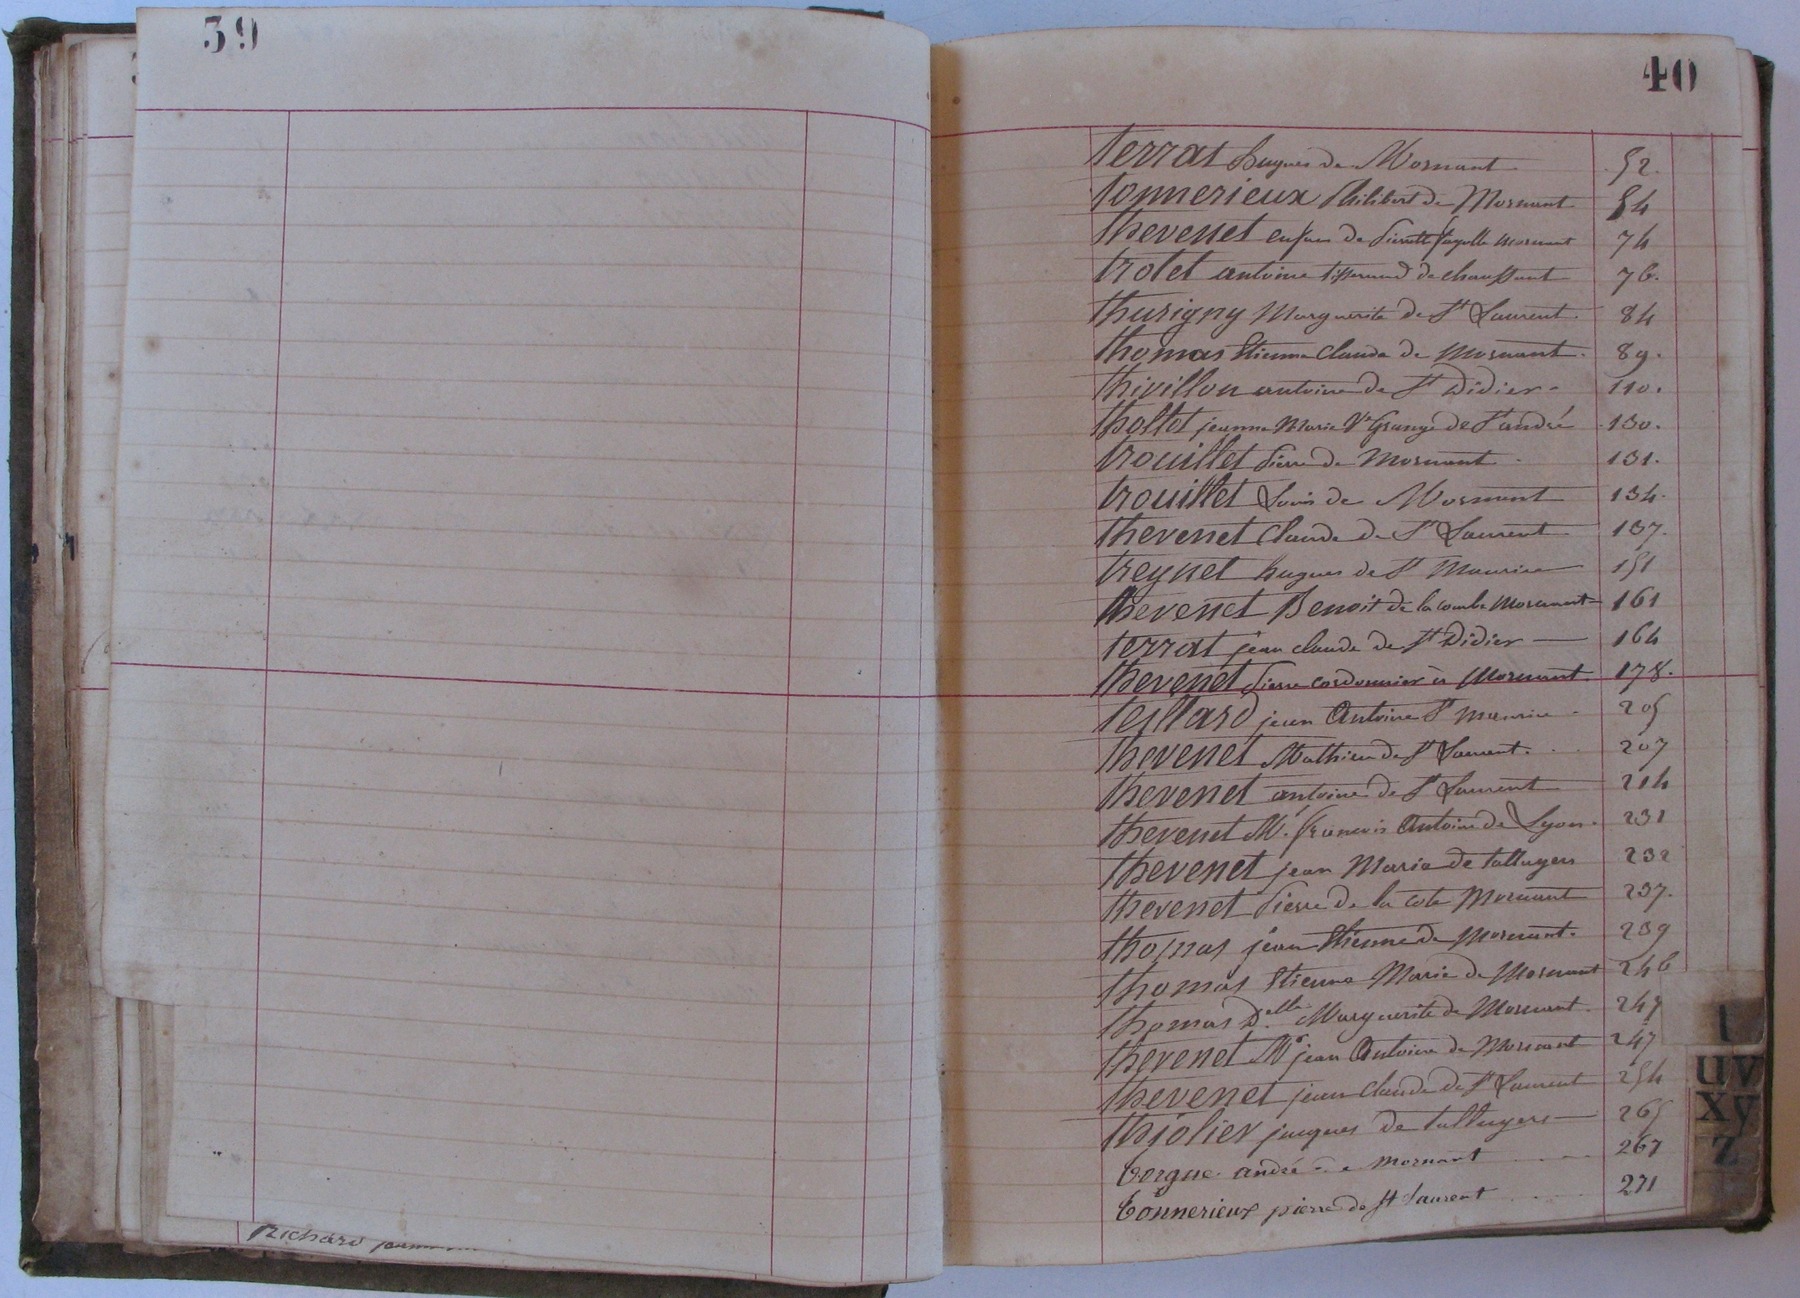 39
Richard
40
terrat hugues de Mornant 52.
tonnerieux Philibert de Mornant 54
thevenet enfans de Pierrette fayolle Mornant 74
trolet antoine tisserand de chaussant 76.
thurigny Marguerite de St Laurent. 84
thomas Etienne Claude de Mornant. 89.
thivillon antoine de St Didier 110.
thollet jeanne Marie Ve Grange de St andré 130.
trouillet Pierre de Mornant. 131.
trouillet Louis de Mornant 134.
thevenet Claude de St Laurent 137.
treynet hugues de St Maurice 151
thevenet Benoit de la combe Mornant 161
terrat jean claude de St Didier 164
thevenet Pierre cordonnier à Mornant. 178.
teillard jean Antoine St Maurice 205
thevenet Mathieu de St Laurent. 207
thevenet antoine de St Laurent 214
thevenet Mr. françois Antoine de Lyon. 231
thevenet jean Marie de talluyers 232
thevenet Pierre de la cote Mornant 237.
thomas jean Etienne de Mornant. 239
thomas Etienne Marie de Mornant 246
thomas Delle Marguerite de Mornant. 247
thevenet Mr jean Antoine de Mornant 247
thevenet jean Claude de St Laurent 254
thjolier jacques de talluyers 265
torgue andré de Mornant 267
tonnerieux pierre de St Laurent 271
t
uv
xy
z